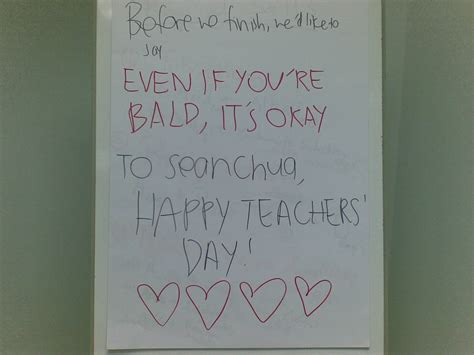 Before we finish, we'd like to
say
EVEN IF YOU'RE
BALD, IT'S OKAY
TO seanchua,
HAPPY TEACHERS'
DAY!